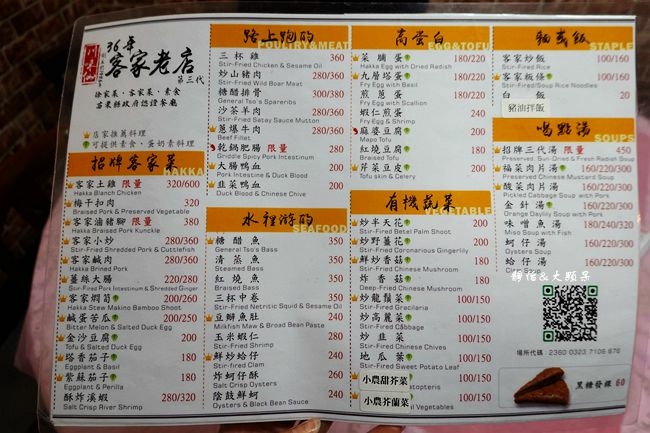 川味仙
36年
客家老店
第三代
客家菜、素食
苗栗縣政府認證餐廳
店家推薦料理
可提供素食、蛋奶素料理
招牌客家菜
HAKKA
客家土雞 限量 320/600
Hakka Blanch Chicken
梅干扣肉 320
Braised Pork & Preserved Vegetable
客家滷豬腳 限量 380
Hakka Braised Pork Kunckle
客家小炒 280/360
Stir-Fried Shredded Pork & Cuttlefish
客家鹹肉 280/360
Hakka Brined Pork
薑絲大腸 220/280
Stir-Fried Pork Intestinum & Shredded Ginger
客家燜筍 200/260
Hakka Stew Makino Bamboo Shoot
鹹蛋苦瓜 200/250
Bitter Melon & Salted Duck Egg
金沙豆腐 200
Tofu & Salted Duck Egg
塔香茄子 180
Eggplant & Basil
紫蘇茄子 180
Eggplant & Perilla
酥炸溪蝦 280/320
Salt Crisp River Shrimp
路上跑的
POULTRY&MEAT
三杯雞 360
Stir-Fried Chicken & Sesame Oil
炒山豬肉 280/360
Stir-Fried Wild Boar Meat
糖醋排骨 280/360
General Tso's Spareribs
沙茶羊肉 280/360
Stir-Fried Satay Sauce Mutton
蔥爆牛肉 280/360
Beef Fillet
乾鍋肥腸 限量 280/380
Griddle Spicy Pork Intestinum
大腸鴨血
Pork Intestine & Duck Blood
韭菜鴨血
Duck Blood & Chinese Chive
水裡游的
SEAFOOD
糖醋魚
General Tso's Bass
清蒸魚
Steamed Bass
紅燒魚
Braised Bass
三杯中卷
Stir-Fried Neritic Squid & Sesame Oil
豆瓣魚肚
Milkfish Maw & Broad Bean Paste
玉米蝦仁
Stir-Fried Shrimp
鮮炒蛤仔
Stir-fried Clam
酥炸蚵仔
Salt Crisp Oysters
陰鼓鮮蚵
Oysters & Black Bean Sauce
高蛋白
EGG&TOFU
菜脯蛋 180/220
Hakka Egg with Dried Radish
九層塔蛋 180/220
Fry Egg with Basil
煎蔥蛋 180/220
Fry Egg with Scallion
蝦仁煎蛋 240
Fry Egg with Shrimp
麻婆豆腐 180/220
Mapo Tofu
紅燒豆腐 180/220
Braised Tofu
芹菜豆皮
Tofu skin & Celery
有機蔬菜
VEGETABLE
炒半天花 200
Stir-Fried Betel Palm Shoot
炒野薑花 200
Stir-Fried Coronarious Gingerlily
鮮炒香菇
Stir-Fried Chinese Mushroom
炸香菇 200
Deep-Fried Chinese Mushroom
炒龍鬚菜 100/150
Stir-Fried Gracilaria
炒高麗菜 100/150
Stir-Fried Cabbage
炒韭菜 100/150
Stir-Fried Chinese Chives
地瓜葉 100/150
Stir-Fried Sweet Potato Leaf
小農甜芥菜 100/150
小農芥蘭菜 100/150
麵或飯
STAPLE
客家炒飯 100/160
Stir-Fried Rice
客家粄條 100/160
Stir-Fried/Soup Rice Noodles
白飯 20
豬油拌飯
喝點湯
SOUPS
招牌三代湯 限量 450
Preserved, Sun-Dried & Fresh Radish Soup
福菜肉片湯 160/220/300
Preserved Chinese Mustard Soup
酸菜肉片湯 160/220/300
Pickled Cabbage Soup with Pork
金針湯 160/220/300
Orange Daylily Soup with Pork
味噌魚湯 180/240/320
Miso Soup with Fish
蚵仔湯 160/220/300
Oysters Soup
蛤仔湯 160/220/300
場所代碼：2360 0323 7106 876
黑糖發粿 60